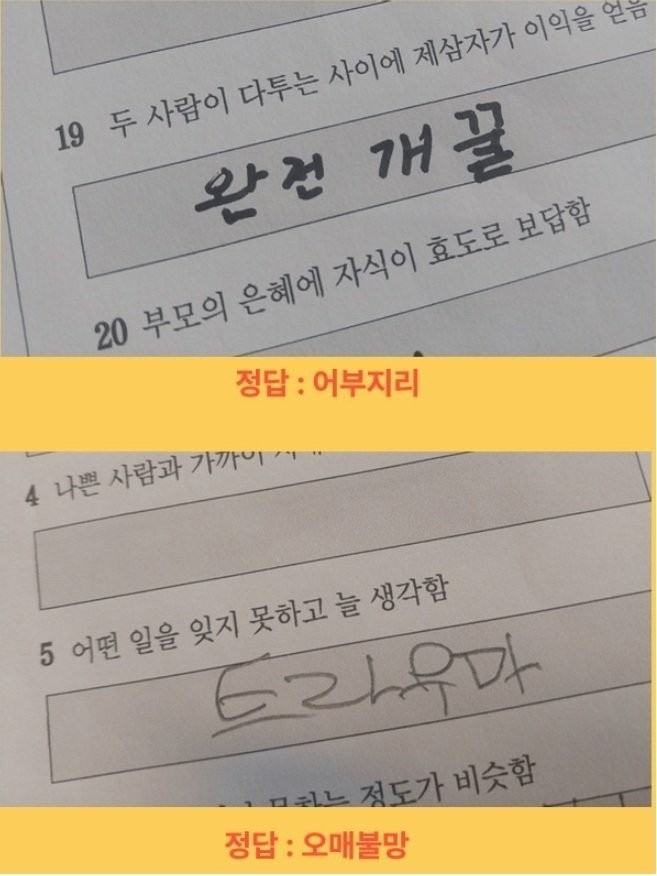 19 두 사람이 다투는 사이에 제삼자가 이익을 얻음
완전 개꿀
20 부모의 은혜에 자식이 효도로 보답함
정답 : 어부지리
4 나쁜 사람과 가까이
5 어떤 일을 잊지 못하고 늘 생각함
트라우마
못하는 정도가 비슷함
정답 : 오매불망